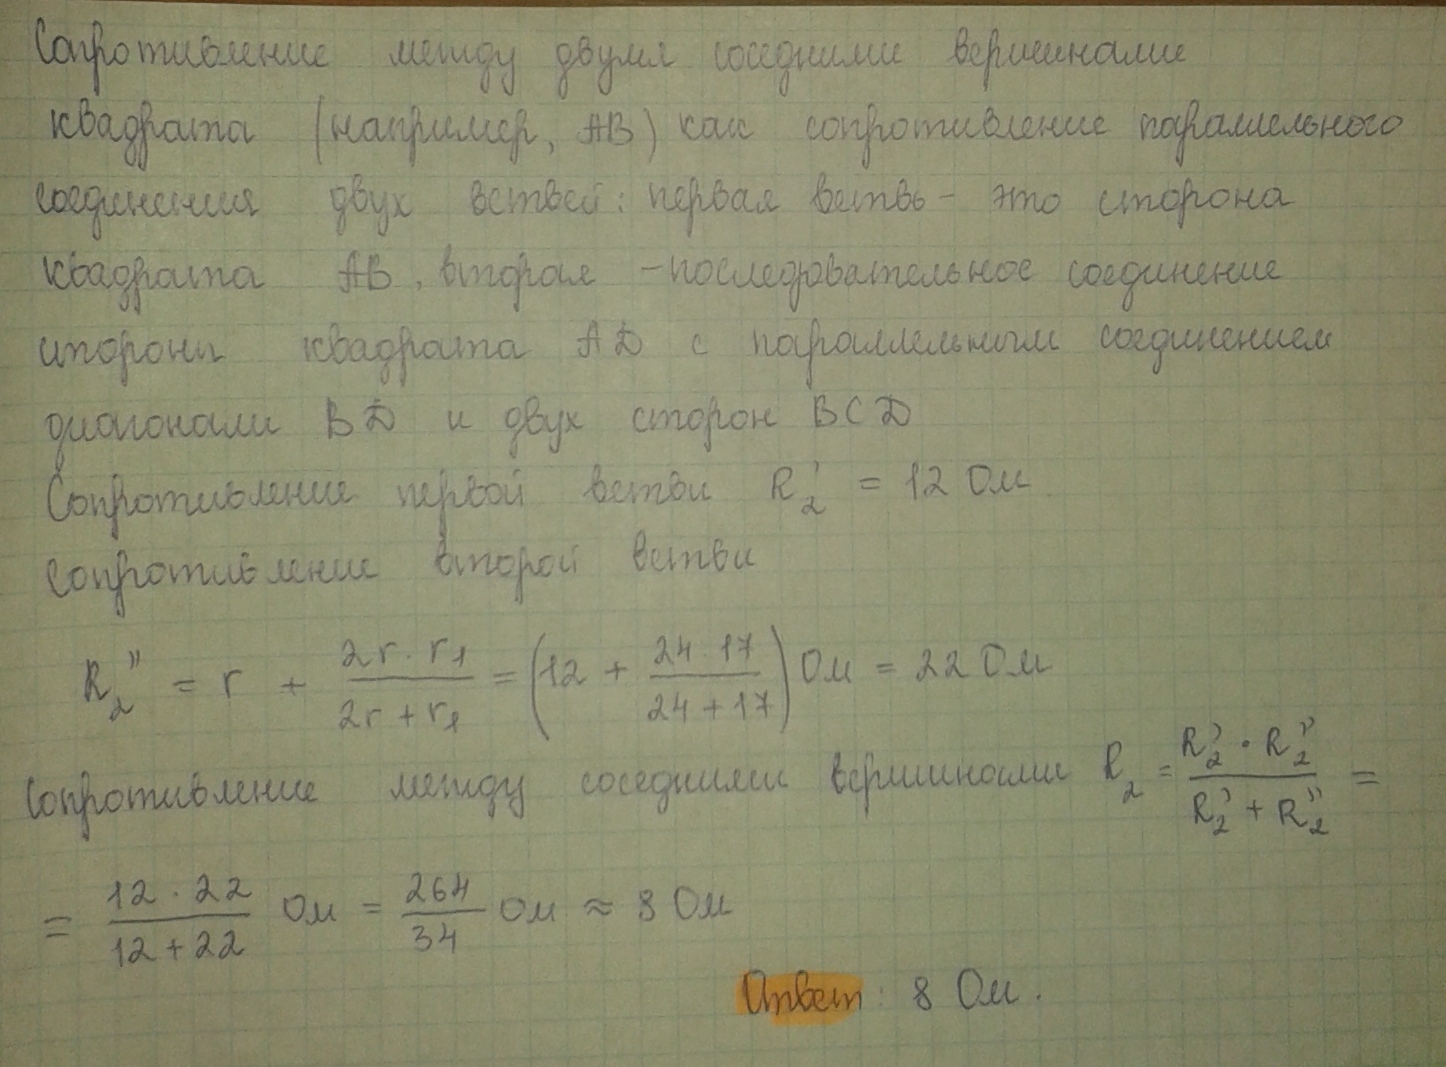 Сопротивление между двумя соседними вершинами
квадрата (например, AB) как сопротивление параллельного
соединения двух ветвей: первая ветвь - это сторона
квадрата AB, вторая - последовательное соединение
стороны квадрата AD с параллельным соединением
диагонали BD и двух сторон BCD
Сопротивление первой ветви R₂' = 12 Ом
Сопротивление второй ветви
R₂'' = r + (2r · r₁)/(2r + r₁) = (12 + (24 · 17)/(24 + 17)) Ом = 22 Ом
Сопротивление между соседними вершинами R₂ = (R₂' · R₂'')/(R₂' + R₂'') =
= (12 · 22)/(12 + 22) Ом = 264/34 Ом ≈ 8 Ом
Ответ: 8 Ом.